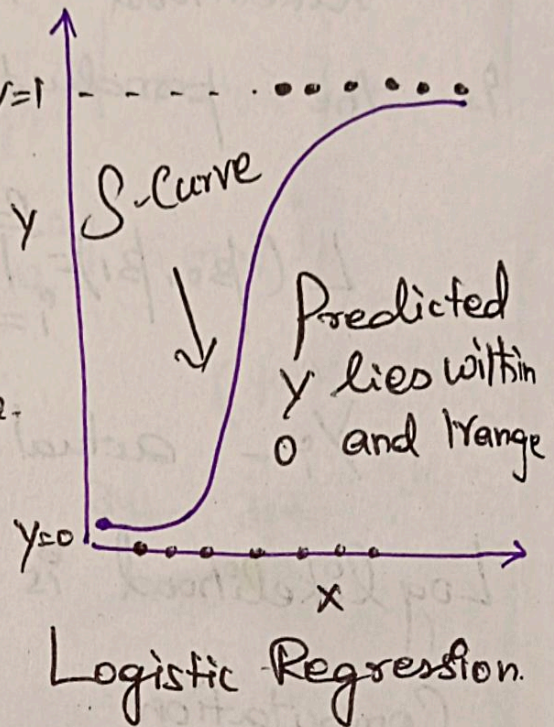 y=1
S-Curve
y
Predicted
y lies within
0 and 1 range
y=0
x
Logistic Regression.